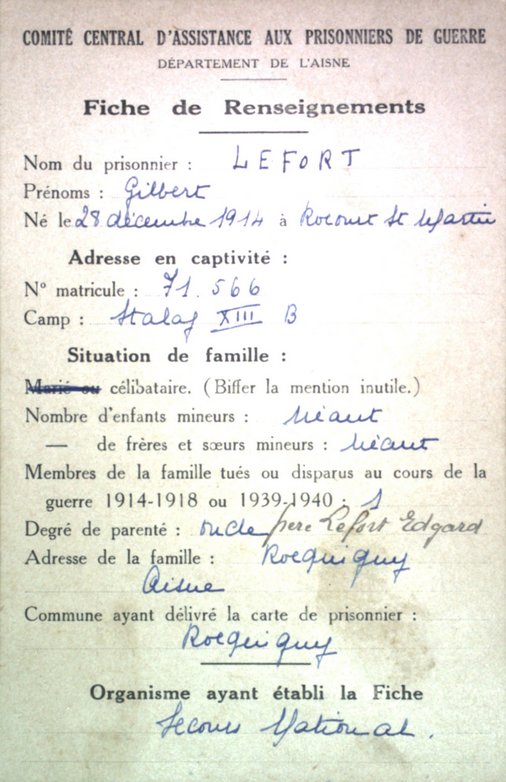 COMITÉ CENTRAL D'ASSISTANCE AUX PRISONNIERS DE GUERRE
DÉPARTEMENT DE L'AISNE
Fiche de Renseignements
Nom du prisonnier : LEFORT
Prénoms : Gilbert
Né le 28 décembre 1914 à Rocourt St Martin
Adresse en captivité :
N° matricule : 71.566
Camp : Stalag XIII B
Situation de famille :
Marié ou célibataire. (Biffer la mention inutile.)
Nombre d'enfants mineurs : Néant
— de frères et sœurs mineurs : Néant
Membres de la famille tués ou disparus au cours de la
guerre 1914-1918 ou 1939-1940 : 1
Degré de parenté : oncle père Lefort Edgard
Adresse de la famille : Rocquigny
Aisne
Commune ayant délivré la carte de prisonnier :
Rocquigny
Organisme ayant établi la Fiche
Secours National.